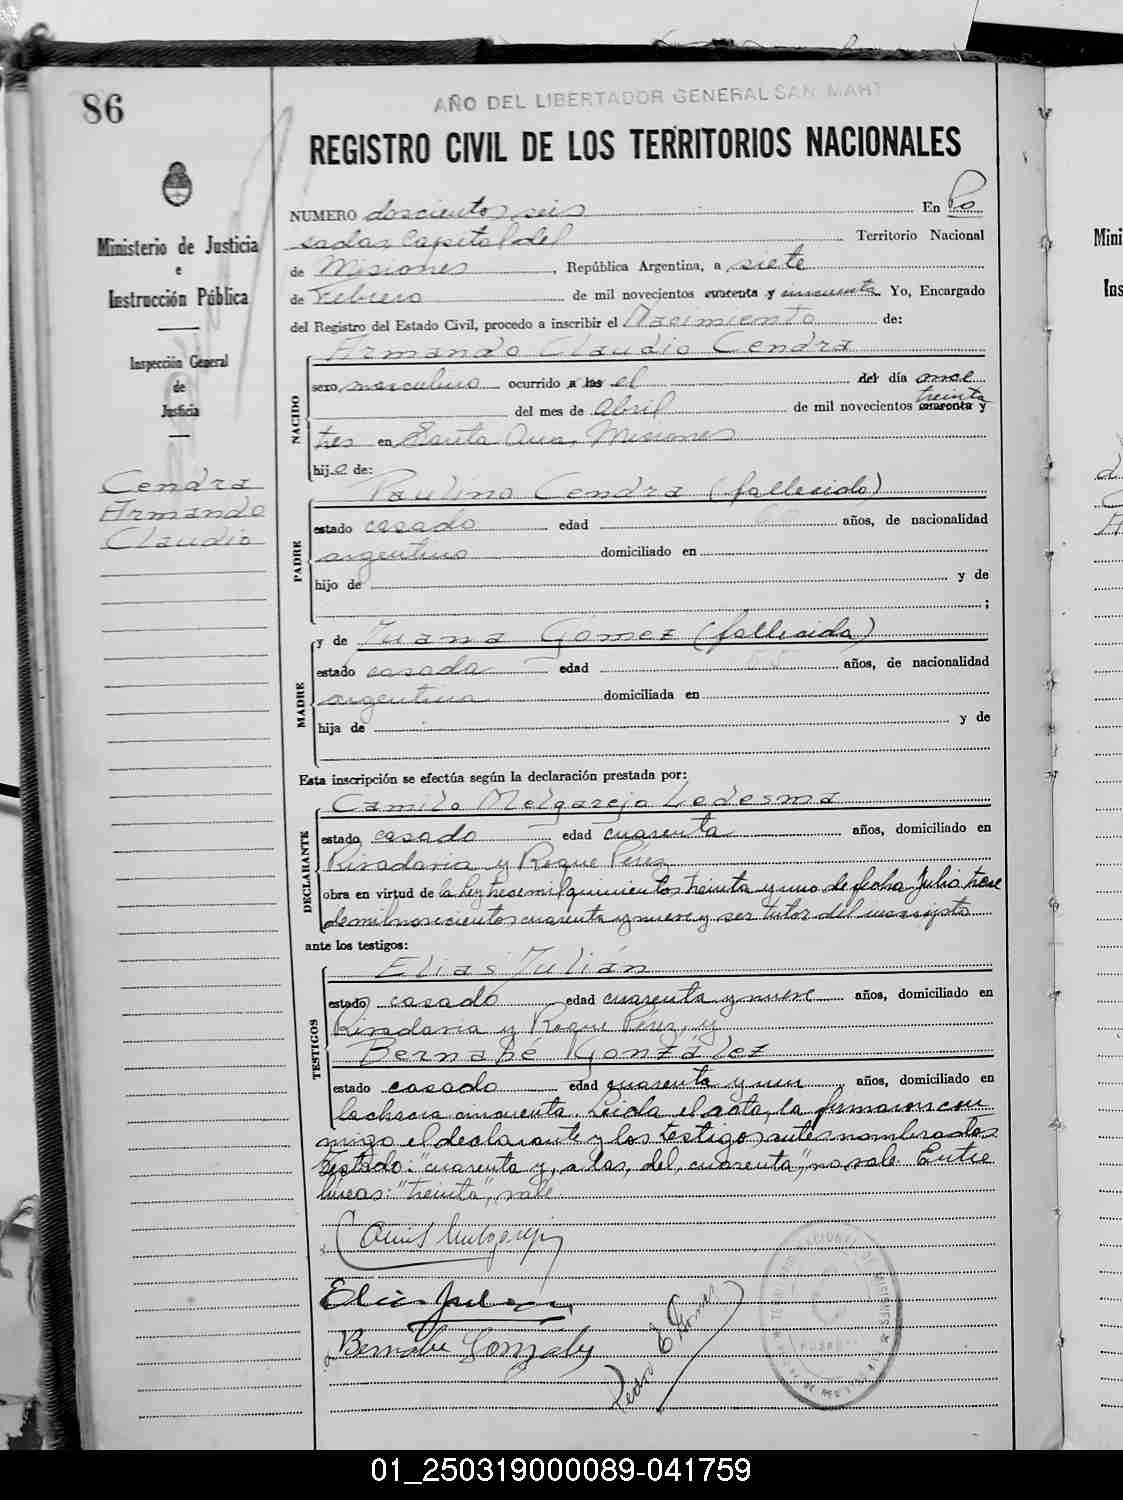 86
AÑO DEL LIBERTADOR GENERAL SAN MART
REGISTRO CIVIL DE LOS TERRITORIOS NACIONALES
Ministerio de Justicia
e
Instrucción Pública
Inspección General
de
Justicia
Cendra
Armando
Claudio
NUMERO doscientos seis En Po
sadas Capital del Territorio Nacional
de Misiones, República Argentina, a siete
de Febrero de mil novecientos cuarenta y cincuenta Yo, Encargado
del Registro del Estado Civil, procedo a inscribir el Nacimiento de:
NACIDO
Armando Claudio Cendra
sexo masculino ocurrido a las el del día once
treinta
del mes de Abril de mil novecientos cuarenta y
tres en Santa Ana, Misiones
hijo de:
PADRE
Paulino Cendra (fallecido)
estado casado edad años, de nacionalidad
argentino domiciliado en
hijo de y de
;
MADRE
y de Juana Gómez (fallecida)
estado casada edad años, de nacionalidad
argentina domiciliada en
hija de y de
Esta inscripción se efectúa según la declaración prestada por:
DECLARANTE
Camilo Melgarejo Ledesma
estado casado edad cuarenta años, domiciliado en
Rivadavia y Roque Pérez
obra en virtud de la Ley trece mil quinientos treinta y uno de fecha Julio trece
de mil novecientos cuarenta y nueve y ser tutor del inscripto
ante los testigos:
TESTIGOS
Elias Julián
estado casado edad cuarenta y nueve años, domiciliado en
Rivadavia y Roque Pérez, y
Bernabé González
estado casado edad cuarenta y un años, domiciliado en
la chacra cincuenta. Leida el acta, la firmaron con
migo el declarante y los testigos antes nombrados
Testado: "cuarenta y, a las, del, cuarenta", no vale. Entre
líneas: "treinta", vale.
Elias Julian
Bernabe González
Pedro E Gomez
Mini
Ins
01_250319000089-041759